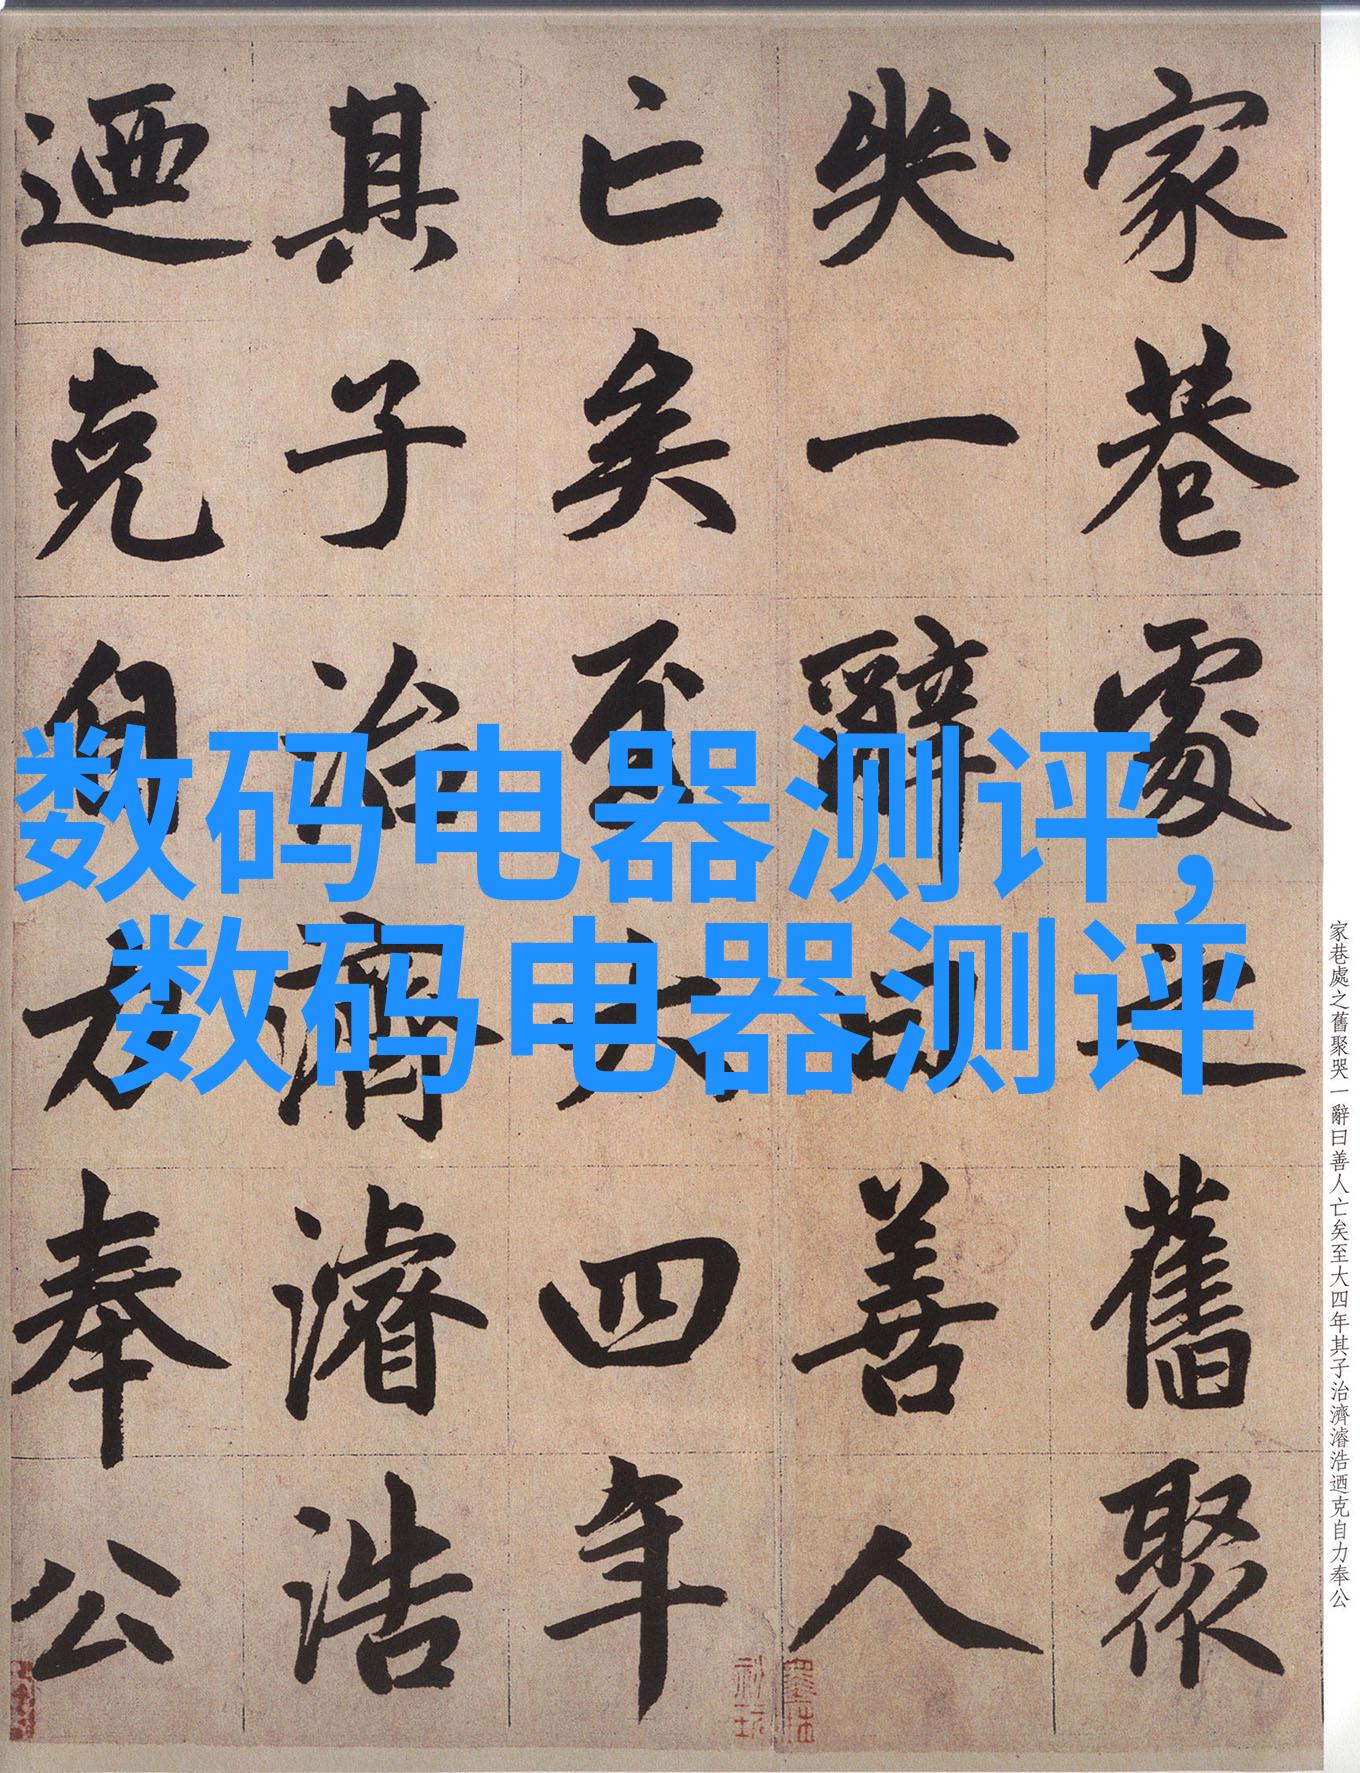 家巷處之舊聚
哭一辭曰善人
亡矣至大四年
其子治濟濬浩
迺克自力奉公
数码电器测评,
数码电器测评
家巷處之舊聚哭一辭曰善人亡矣至大四年其子治濟濬浩迺克自力奉公